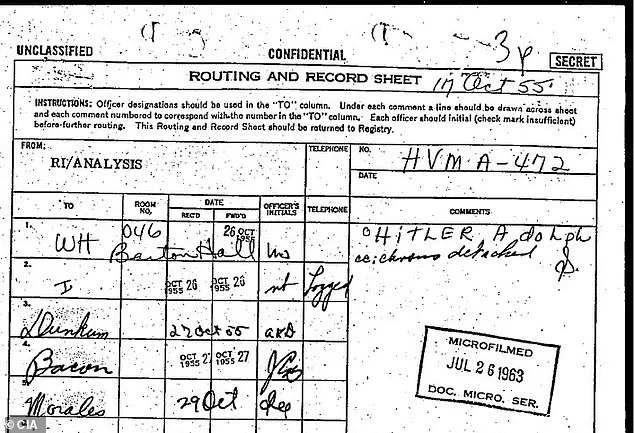 3p
UNCLASSIFIED
CONFIDENTIAL
SECRET
ROUTING AND RECORD SHEET 17 Oct 55
INSTRUCTIONS: Officer designations should be used in the "TO" column. Under each comment a line should be drawn across sheet
and each comment numbered to correspond with the number in the "TO" column. Each officer should initial (check mark insufficient)
before further routing. This Routing and Record Sheet should be returned to Registry.
FROM:
RI/ANALYSIS
TELEPHONE
NO. HVM.A-472
DATE
TO
ROOM NO.
DATE
REC'D
FWD'D
OFFICER'S INITIALS
TELEPHONE
COMMENTS
1. WH 046 Barton Hall 26 OCT 1955
HITLER Adolph
cc: chrono detached
2. I OCT 26 1955 OCT 26 1955 nt Logged
3. Dunkum 27 Oct 55
4. Bacon OCT 27 1955 OCT 27
5. Morales 29 Oct
MICROFILMED
JUL 26 1963
DOC. MICRO. SER.
© CIA